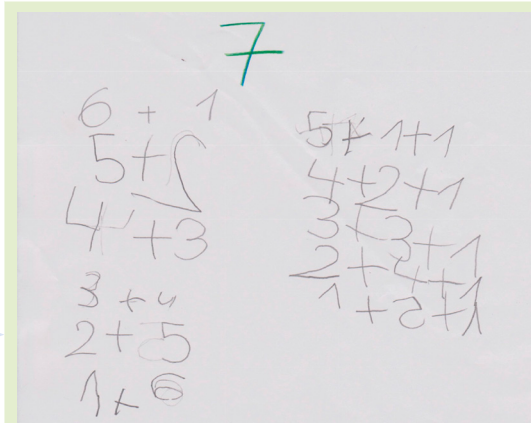 7
6 + 1
5+2
4+3
3+4
2+5
1+6
5+1+1
4+2+1
3+3+1
2+4+1
1+5+1